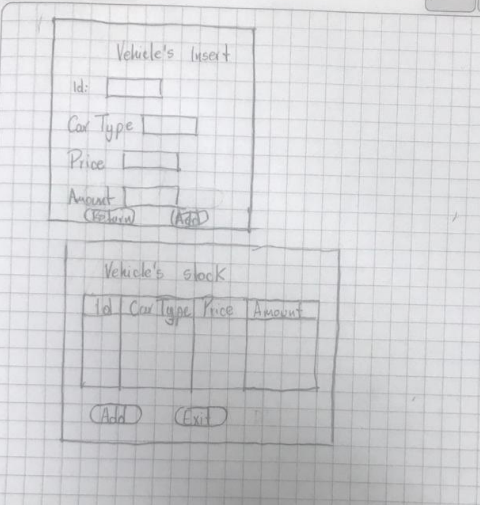 Vehicle's Insert
Id:
Car Type
Price
Amount
Return Add
Vehicle's stock
Id Car Type Price Amount
Add Exit